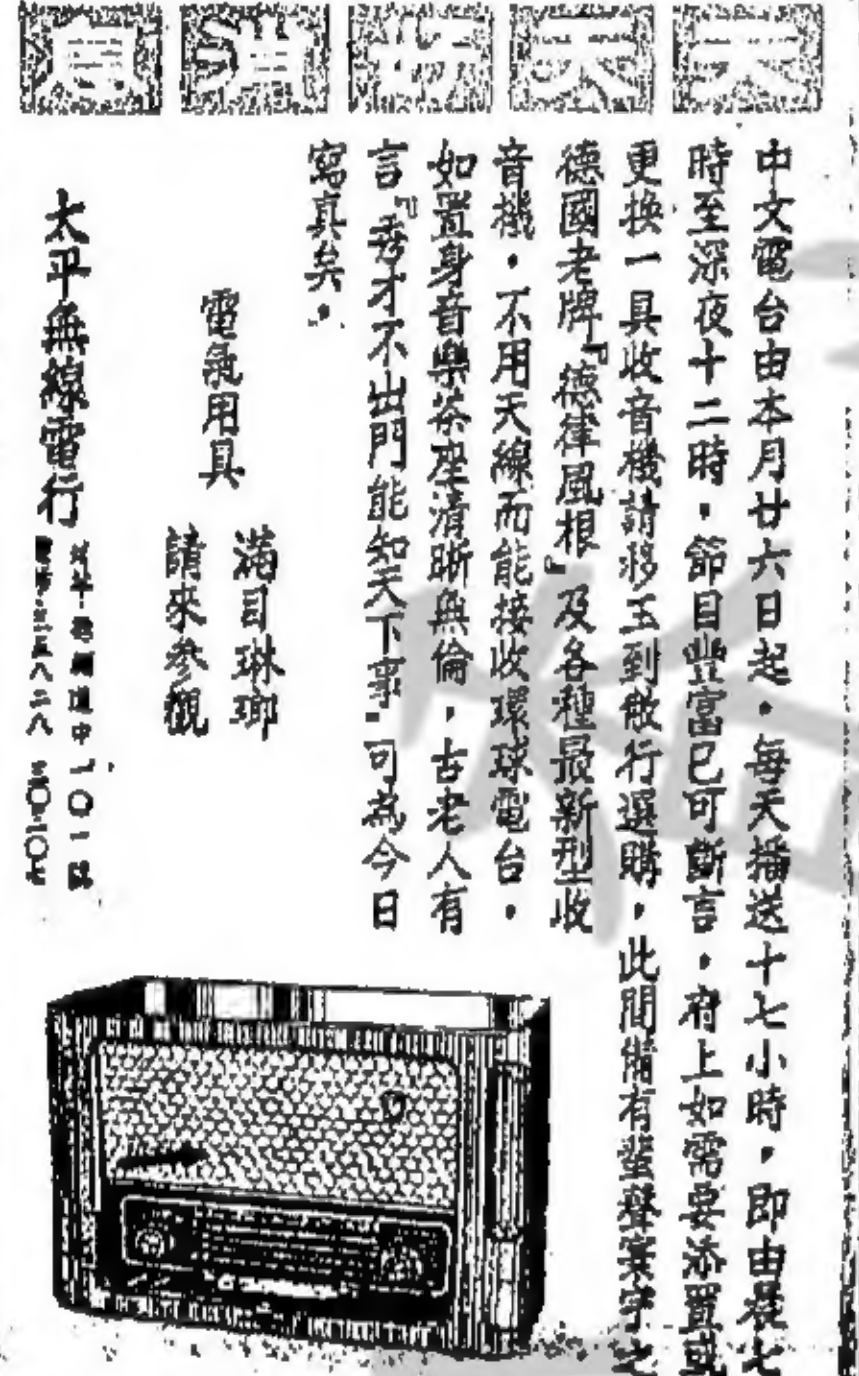 天天好消息
中文電台由本月廿六日起，每天播送十七小時，即由晨七
時至深夜十二時，節目豐富已可斷言，府上如需要添置或
更換一具收音機請移玉到敝行選購，此間備有蜚聲寰宇之
德國老牌『德律風根』及各種最新型收
音機，不用天線而能接收環球電台，
如置身音樂茶座清晰無倫，古老人有
言『秀才不出門能知天下事』可為今日
寫真矣。
電氣用具
滿目琳瑯
請來參觀
太平無線電行
道中一〇一號